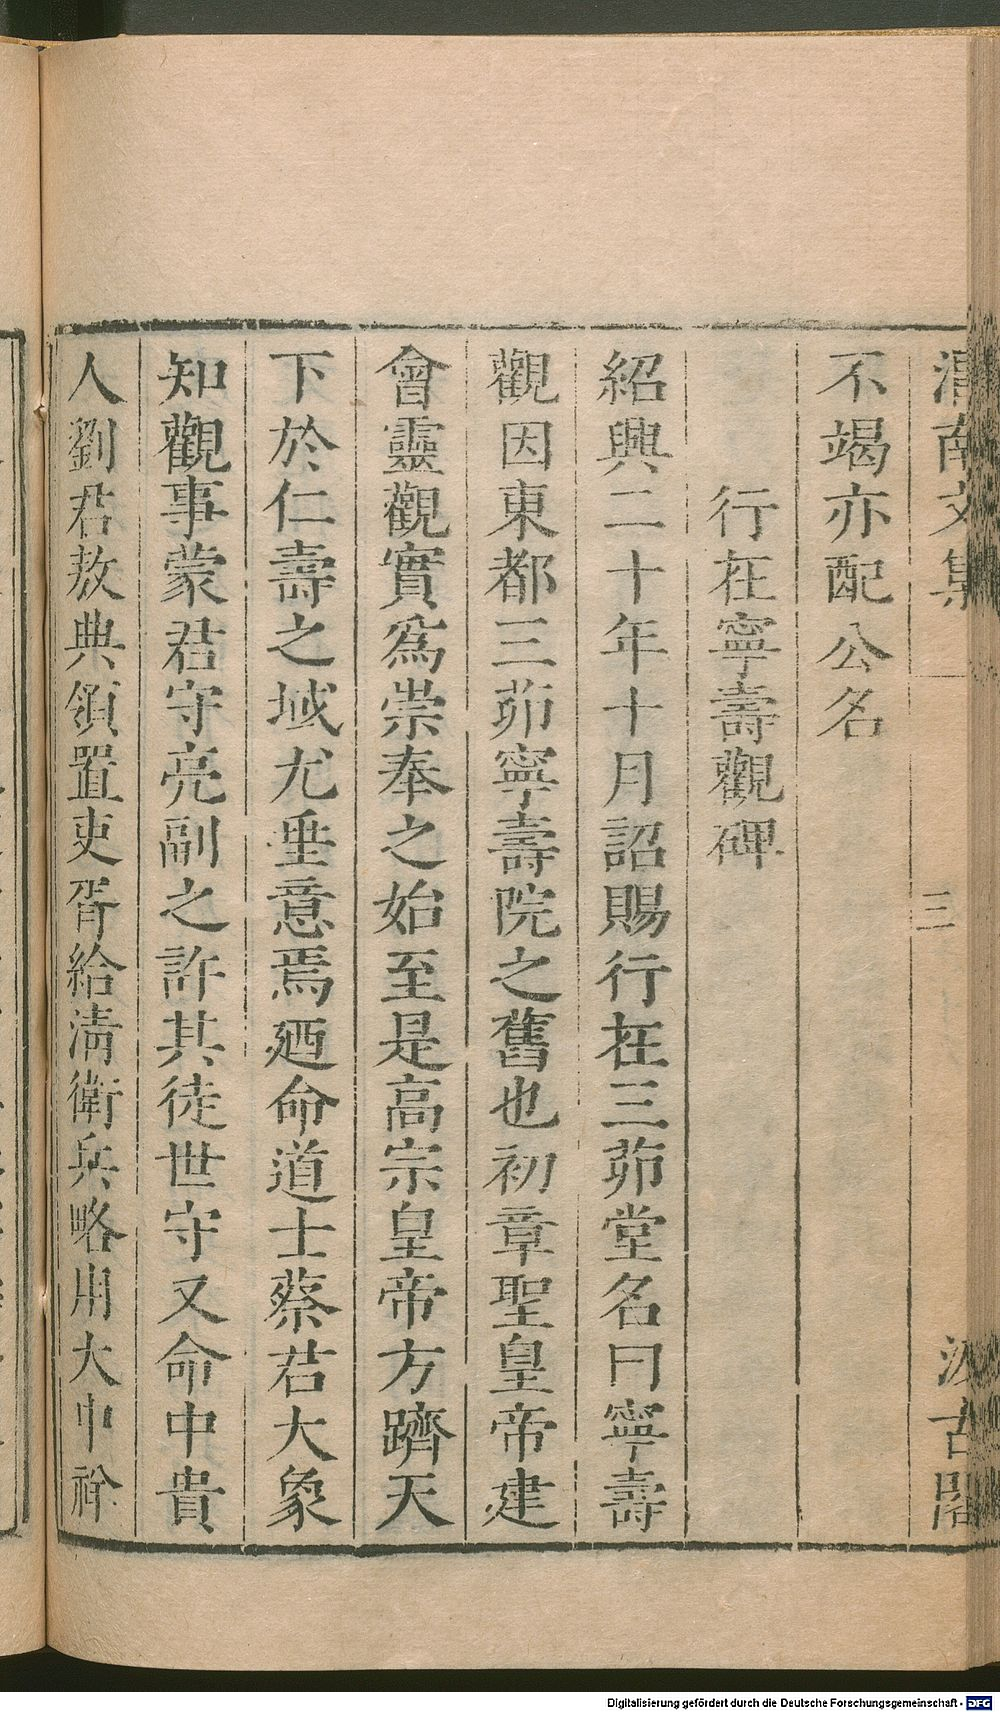 渭南文集 三 汲古閣
不竭亦配公名
行在寧壽觀碑
紹興二十年十月詔賜行在三茆堂名曰寧壽
觀因東都三茆寧壽院之舊也初章聖皇帝建
會靈觀實爲崇奉之始至是高宗皇帝方躋天
下於仁壽之域尤垂意焉廼命道士蔡君大象
知觀事蒙君守亮副之許其徒世守又命中貴
人劉君敖典領置吏胥給淸衛兵略用大中祥
Digitalisierung gefördert durch die Deutsche Forschungsgemeinschaft - DFG